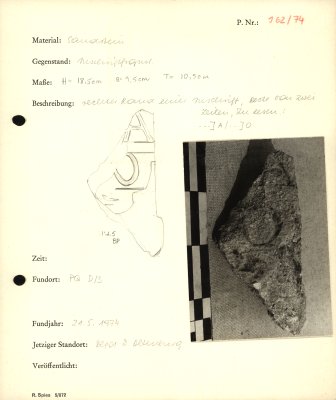 P. Nr.: 162/74
Material: Sandstein
Gegenstand: Inschriftfragment
Maße: H- 18,5cm B- 9,5cm T= 10,5cm
Beschreibung: rechter Rand einer Inschrift, Rest von zwei
Zeilen, zu lesen:
...]A/...]O
Zeit:
Fundort:
Fundjahr: 1974
Jetziger Standort:
Veröffentlicht:
R. Spies 5/072